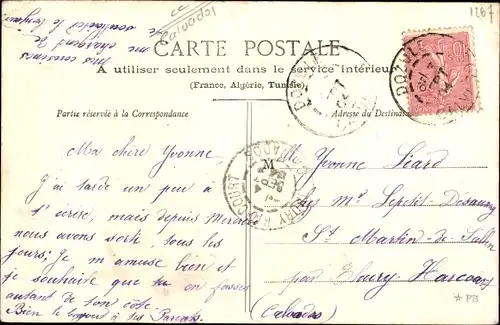 1267
Calvados
CARTE POSTALE
A utiliser seulement dans le service intérieur
(France, Algérie, Tunisie)
Partie réservée à la Correspondance
Adresse du Destinataire
Ma chère Yvonne,
J'ai tardé un peu à
t'écrire, mais depuis Mercredi
nous avons sorti, tous les
jours; Je m'amuse bien et
je souhaite que tu en fasses
autant de ton côté.
Bien le bonjour à tes Parents.
mes cousines
me chargent de
te souhaiter le bonjour
M Yvonne Liard
chez Mr Lepetit-Desaunay
St Martin-de-Sallen
par Thury Harcourt
(Calvados)
DOZULÉ
DOZULÉ
THURY HARCOURT
CALVADOS
PB